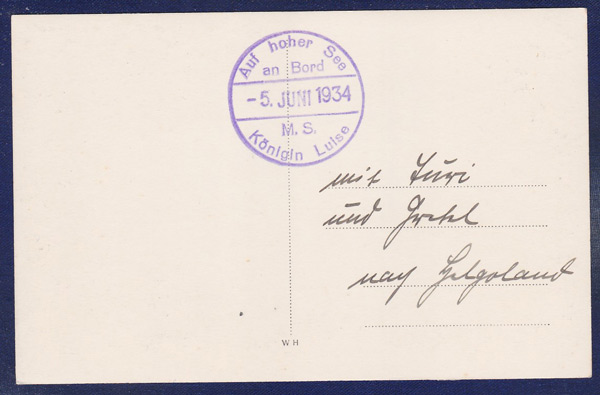 Auf hoher See
an Bord
-5. JUNI 1934
M.S.
Königin Luise
mit Turi
und Gretel
nach Helgoland
WH